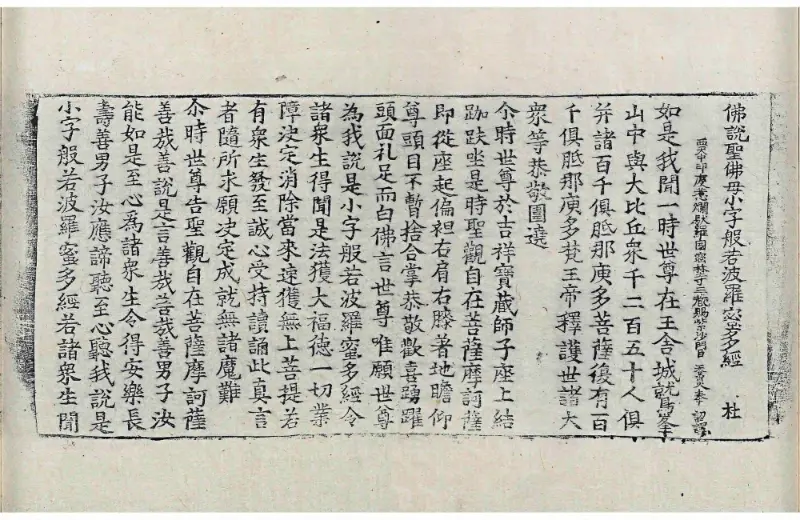 佛說聖佛母小字般若波羅蜜多經　杜
西天中印度惹爛馱羅國密林寺三藏賜紫沙門臣天息災奉　詔譯
如是我聞一時世尊在王舍城鷲峯
山中與大比丘衆千二百五十人俱
并諸百千俱胝那庾多菩薩復有百
千俱胝那庾多梵王帝釋護世諸大
衆等恭敬圍遶
尒時世尊於吉祥寶藏師子座上結
跏趺坐是時聖觀自在菩薩摩訶薩
即從座起偏袒右肩右膝著地瞻仰
尊頭目不暫捨合掌恭敬歡喜踴躍
頭面礼足而白佛言世尊唯願世尊
為我說是小字般若波羅蜜多經令
諸衆生得聞是法獲大福德一切業
障決定消除當來速獲無上菩提若
有衆生發至誠心受持讀誦此真言
者隨所求願決定成就無諸魔難
尒時世尊告聖觀自在菩薩摩訶薩
善哉善說是言善哉善哉善男子汝
能如是至心爲諸衆生令得安樂長
壽善男子汝應諦聽至心聽我說是
小字般若波羅蜜多經若諸衆生聞